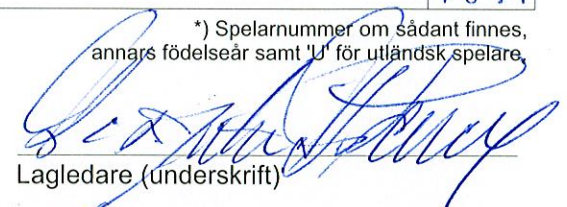 *) Spelarnummer om sådant finnes,
annars födelseår samt 'U' för utländsk spelare.
Lagledare (underskrift)